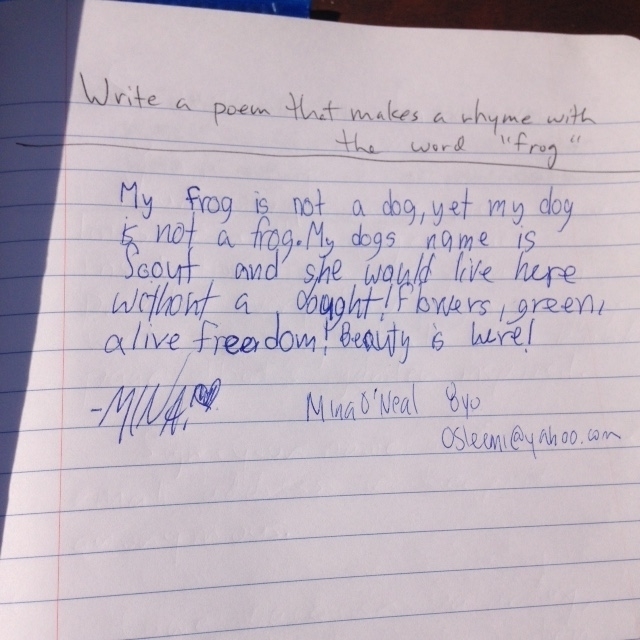 Write a poem that makes a rhyme with
the word "frog"
My frog is not a dog, yet my dog
is not a frog. My dogs name is
Scout and she would live here
without a dought! Flowers, green,
alive freedom! Beauty is here!
-MINA
Mina O'Neal 8yo
osleemi@yahoo.com